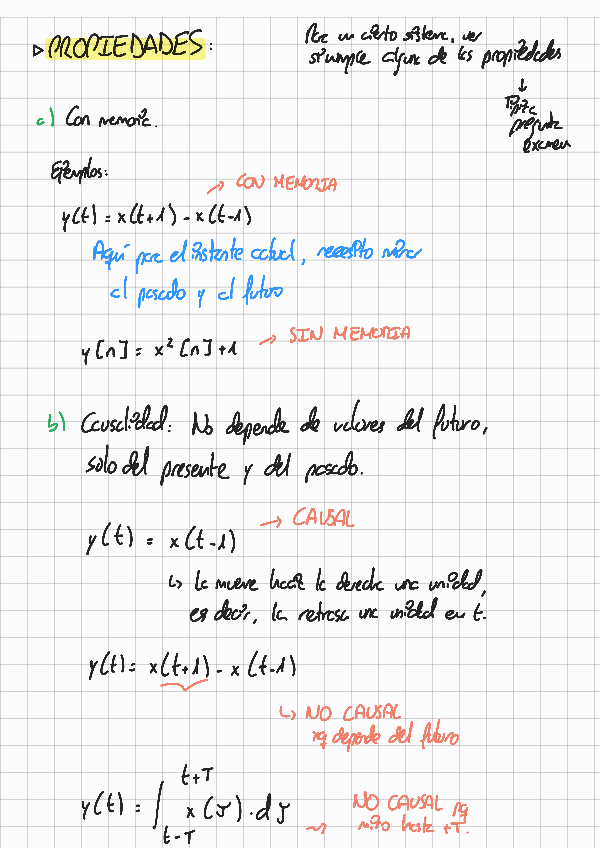 ▷ PROPIEDADES:
Para un cierto sistema, ver
si cumple alguna de las propiedades
↓
Típica
pregunta
examen
a) Con memoria.
Ejemplos:
→ CON MEMORIA
y(t) = x(t+1) - x(t-1)
Aquí para el instante actual, necesito mirar
al pasado y al futuro
y[n] = x² [n] + 1 → SIN MEMORIA
b) Causalidad: No depende de valores del futuro,
solo del presente y del pasado.
y(t) = x(t-1) → CAUSAL
↳ La mueve hacia la derecha una unidad,
es decir, la retrasa una unidad en t.
y(t) = x(t+1) - x(t-1)
↳ NO CAUSAL
xq depende del futuro
y(t) = ∫_{t-T}^{t+T} x(τ) · dτ
→ NO CAUSAL pq
miro hasta +T.